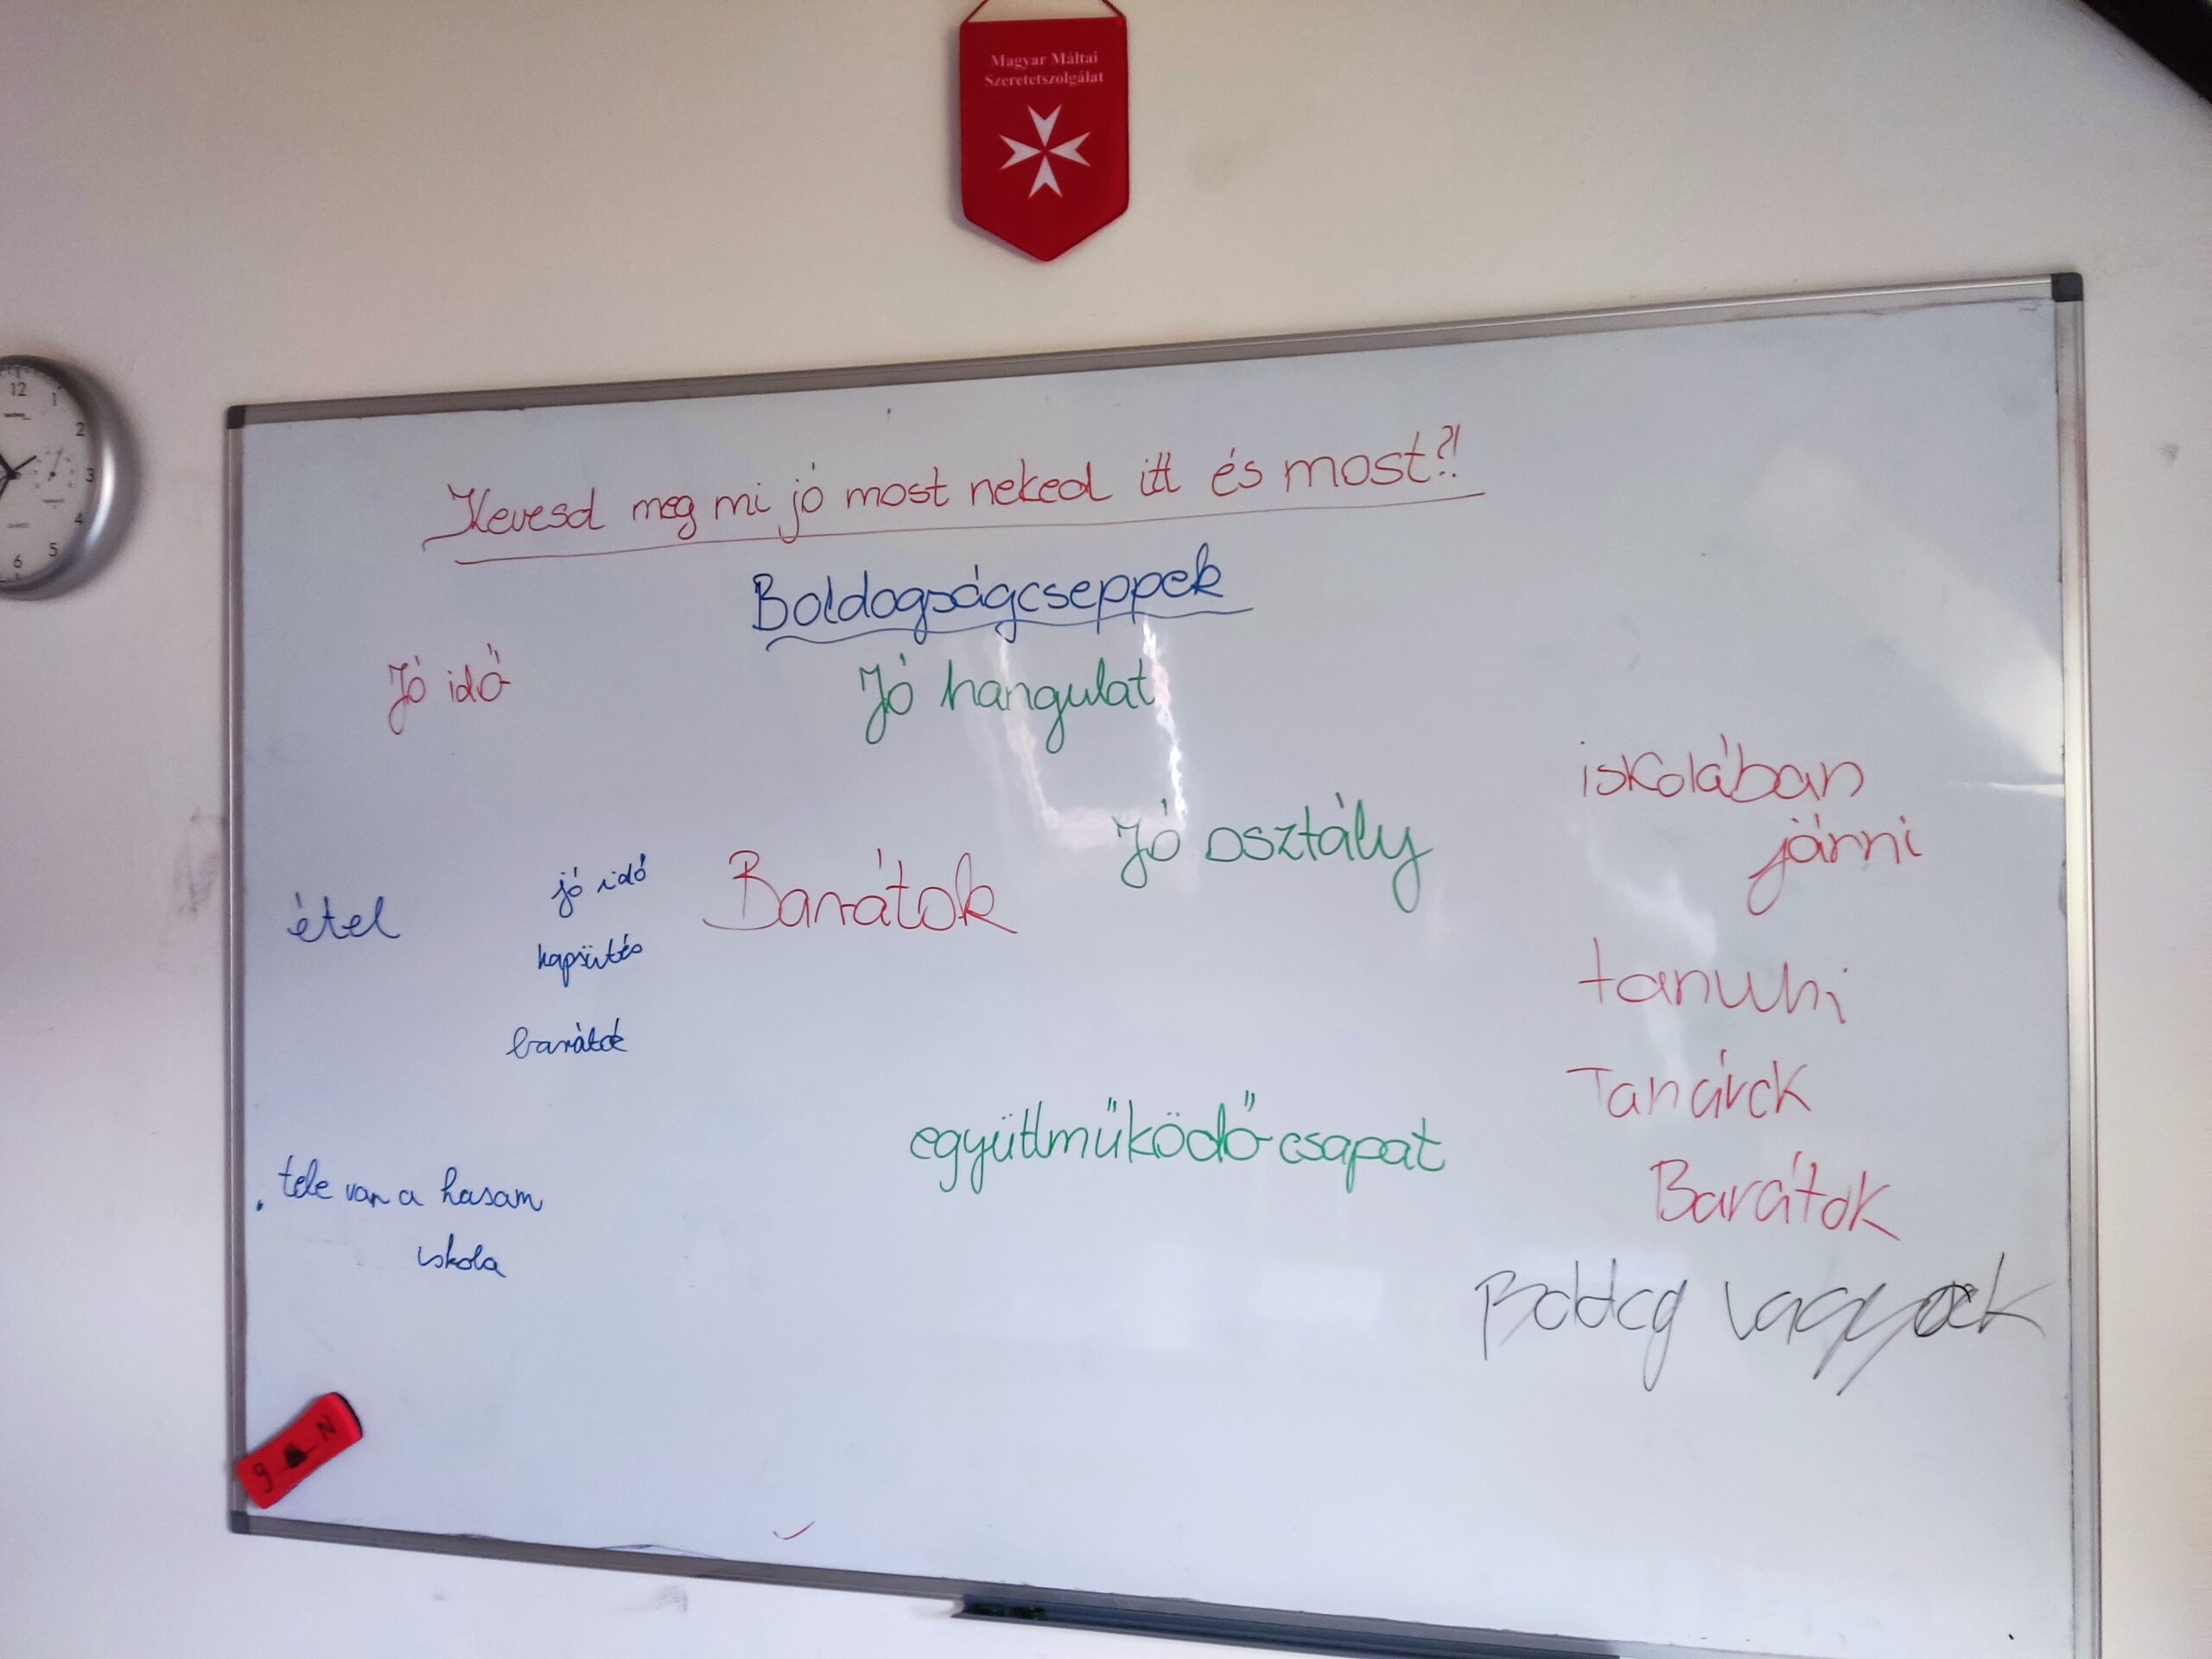 Magyar Máltai
Szeretetszolgálat
12
1
2
3
4
5
6
Kevesd meg mi jó most neked itt és most?!
Boldogságcseppek
Jó idő
Jó hangulat
iskolában
járni
Jó osztály
Barátok
jó idő
étel
kapsütés
barátok
tanulni
Tanárok
együttműködő csapat
Barátok
tele van a hasam
iskola
Boldog vagyok